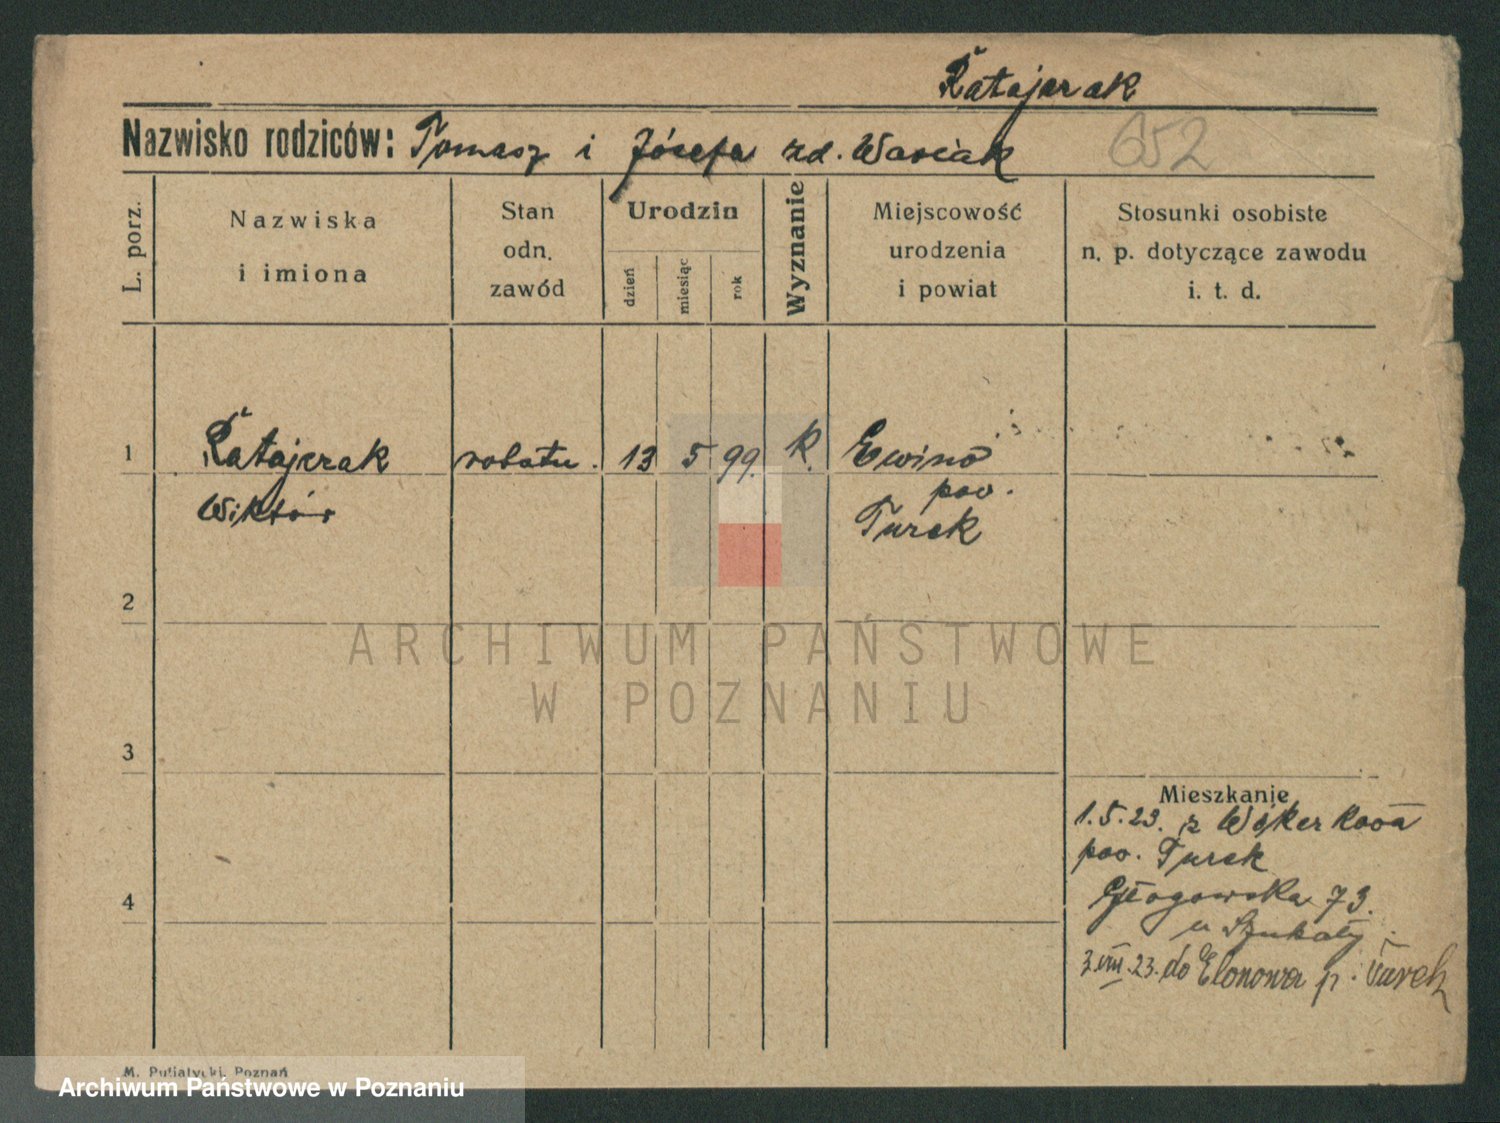 Ratajczak
Nazwisko rodziców: Tomasz i Józefa zd. Wasiak 652
L. porz.
Nazwiska
i imiona
Stan
odn.
zawód
Urodzin
dzień
miesiąc
rok
Wyznanie
Miejscowość
urodzenia
i powiat
Stosunki osobiste
n. p. dotyczące zawodu
i. t. d.
1 Ratajczak robotn. 13 5 99. k. Ewinów
Wiktór pow.
Turek
2
3
4
Mieszkanie
1.5.23. z
pow. Turek
Głogowska 73.
u Szukały
3.VIII.23. do p. Turek
M. Putiatycki, Poznań
ARCHIWUM PAŃSTWOWE
W POZNANIU
Archiwum Państwowe w Poznaniu